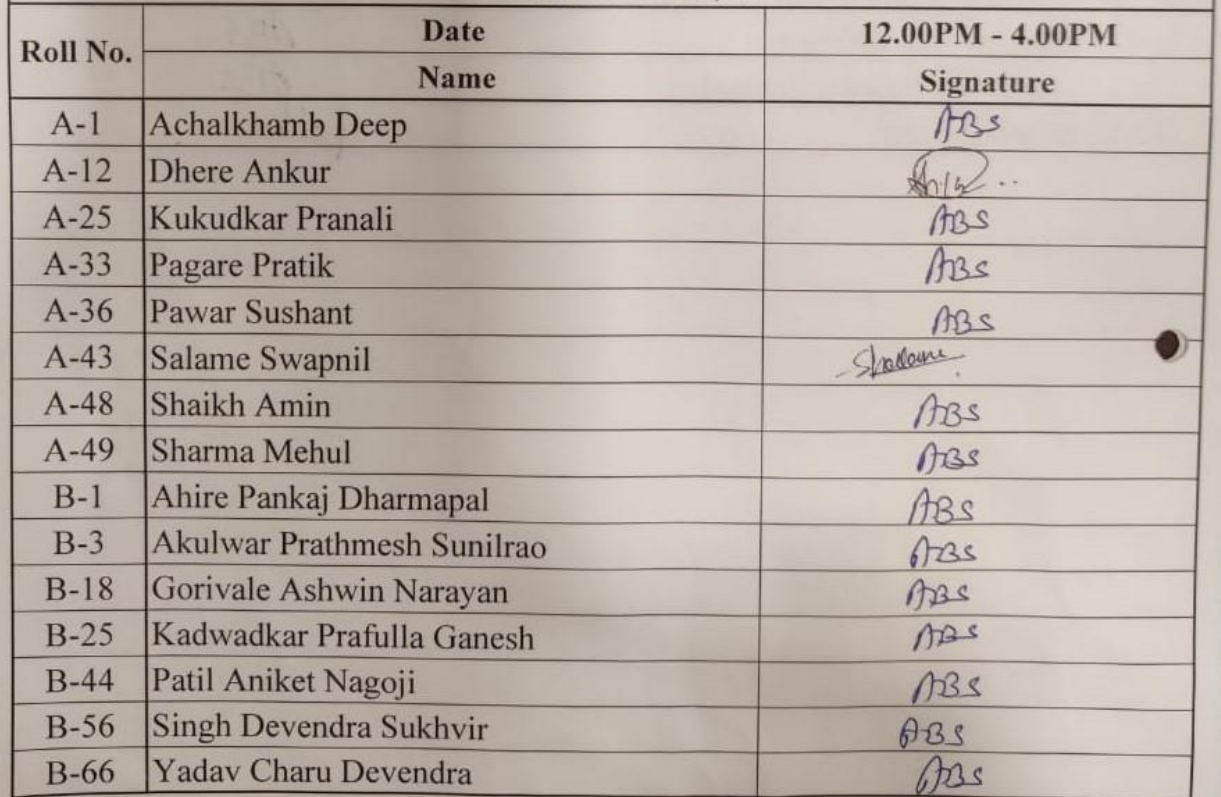 Roll No. Date 12.00PM - 4.00PM
Name Signature
A-1 Achalkhamb Deep ABS
A-12 Dhere Ankur
A-25 Kukudkar Pranali ABS
A-33 Pagare Pratik ABS
A-36 Pawar Sushant ABS
A-43 Salame Swapnil
A-48 Shaikh Amin ABS
A-49 Sharma Mehul ABS
B-1 Ahire Pankaj Dharmapal ABS
B-3 Akulwar Prathmesh Sunilrao ABS
B-18 Gorivale Ashwin Narayan ABS
B-25 Kadwadkar Prafulla Ganesh ABS
B-44 Patil Aniket Nagoji ABS
B-56 Singh Devendra Sukhvir ABS
B-66 Yadav Charu Devendra ABS